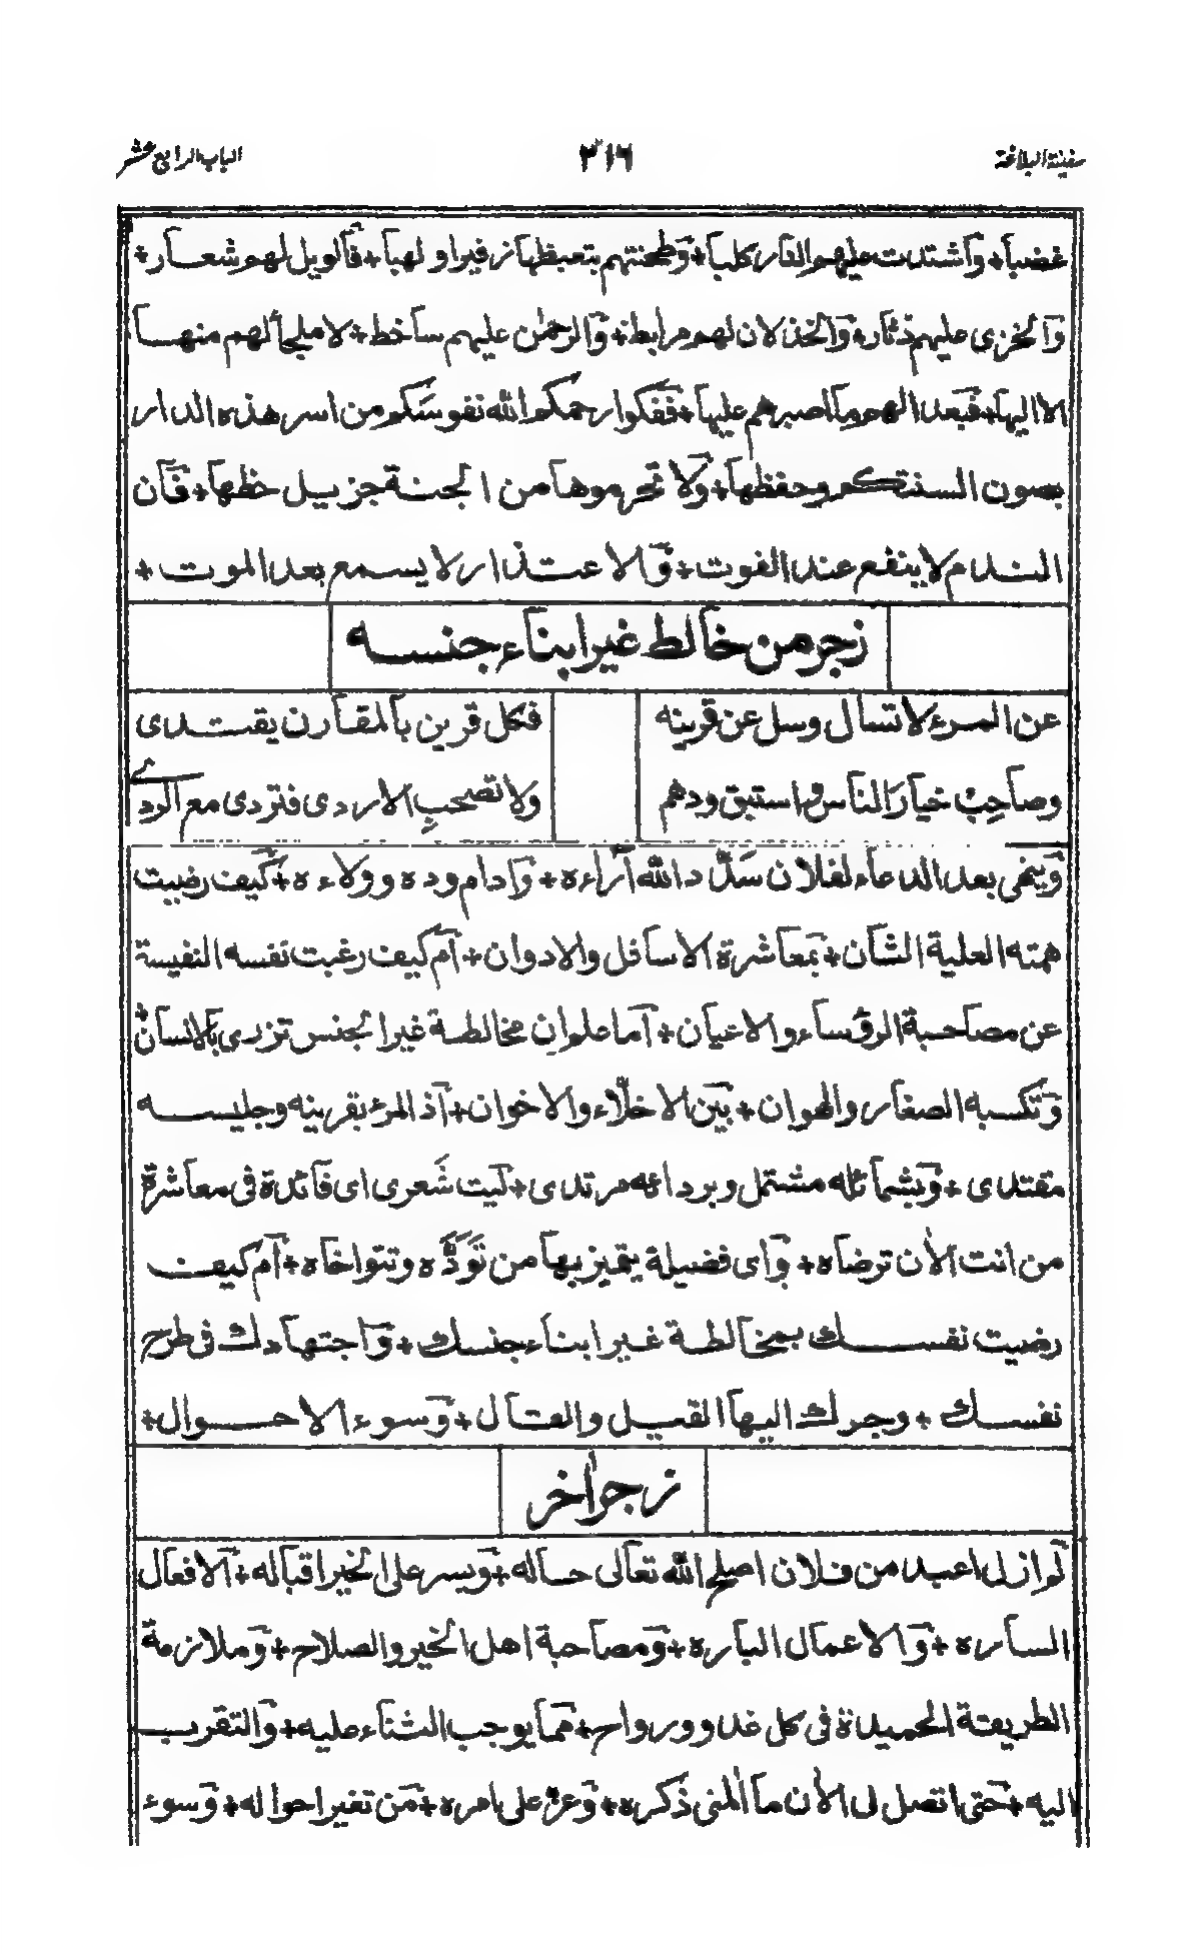 سفينة البلاغة ٣١٦ الباب الرابع عشر
غضبا + واشتدت عليهم النار كلبا + وطحنتهم بتغيظها زفيرا ولهبا + فالويل لهم شعار +
والخزى عليهم دثار + والخذلان لهم مرابط + والرحمٰن عليهم ساخط + لا ملجأ لهم منها
الا اليها + فبعدا لهم وما اصبرهم عليها + ففكوا رحمكم الله نفوسكم من اسر هذه الدار
بصون السنتكم وحفظها + ولا تحرموها من الجنة جزيل حظها + فان
الندم لا ينفع عند الفوت + والاعتذار لا يسمع بعد الموت +
زجر من خالط غير ابناء جنسه
عن المرء لا تسأل وسل عن قرينه فكل قرين بالمقارن يقتدى
وصاحِبْ خيارَ الناس واستبق ودهم ولا تصحبِ الاردى فتردى مع الردى
وينهى بعد الدعاء لفلان سدّد الله اراءه + وادام وده وولاءه + كيف رضيت
همته العلية الشان + بمعاشرة الاسافل والادوان + ام كيف رغبت نفسه النفيسة
عن مصاحبة الرؤساء والاعيان + اما علم ان مخالطة غير الجنس تزدى بالانسان +
وتكسبه الصغار والهوان + بين الاخلّاء والاخوان + اذ المرء بقرينه وجليسه
مقتدى + وبشمائله مشتمل وبردائه مرتدى + ليت شعرى اى فائدة فى معاشرة
من انت الأن ترضاه + واى فضيلة يتميز بها من تَوَدُّه وتتواخاه + ام كيف
رضيت نفسك بمخالطة غير ابناء جنسك + واجتهادك فى طرح
نفسك + وجرك اليها القيل والقال + وسوء الاحوال +
زجر اٰخر
لم ازل اعهد من فلان اصلح الله تعالى حاله + ويسر على الخير اقباله + الافعال
الساره + والاعمال الباره + ومصاحبة اهل الخير والصلاح + وملازمة
الطريقة الحميدة فى كل غدو ورواح + مما يوجب الثناء عليه + والتقرب
اليه + حتى اتصل لى الأن ما المنى ذكره + وعزّ على امره + من تغير احواله + وسوء